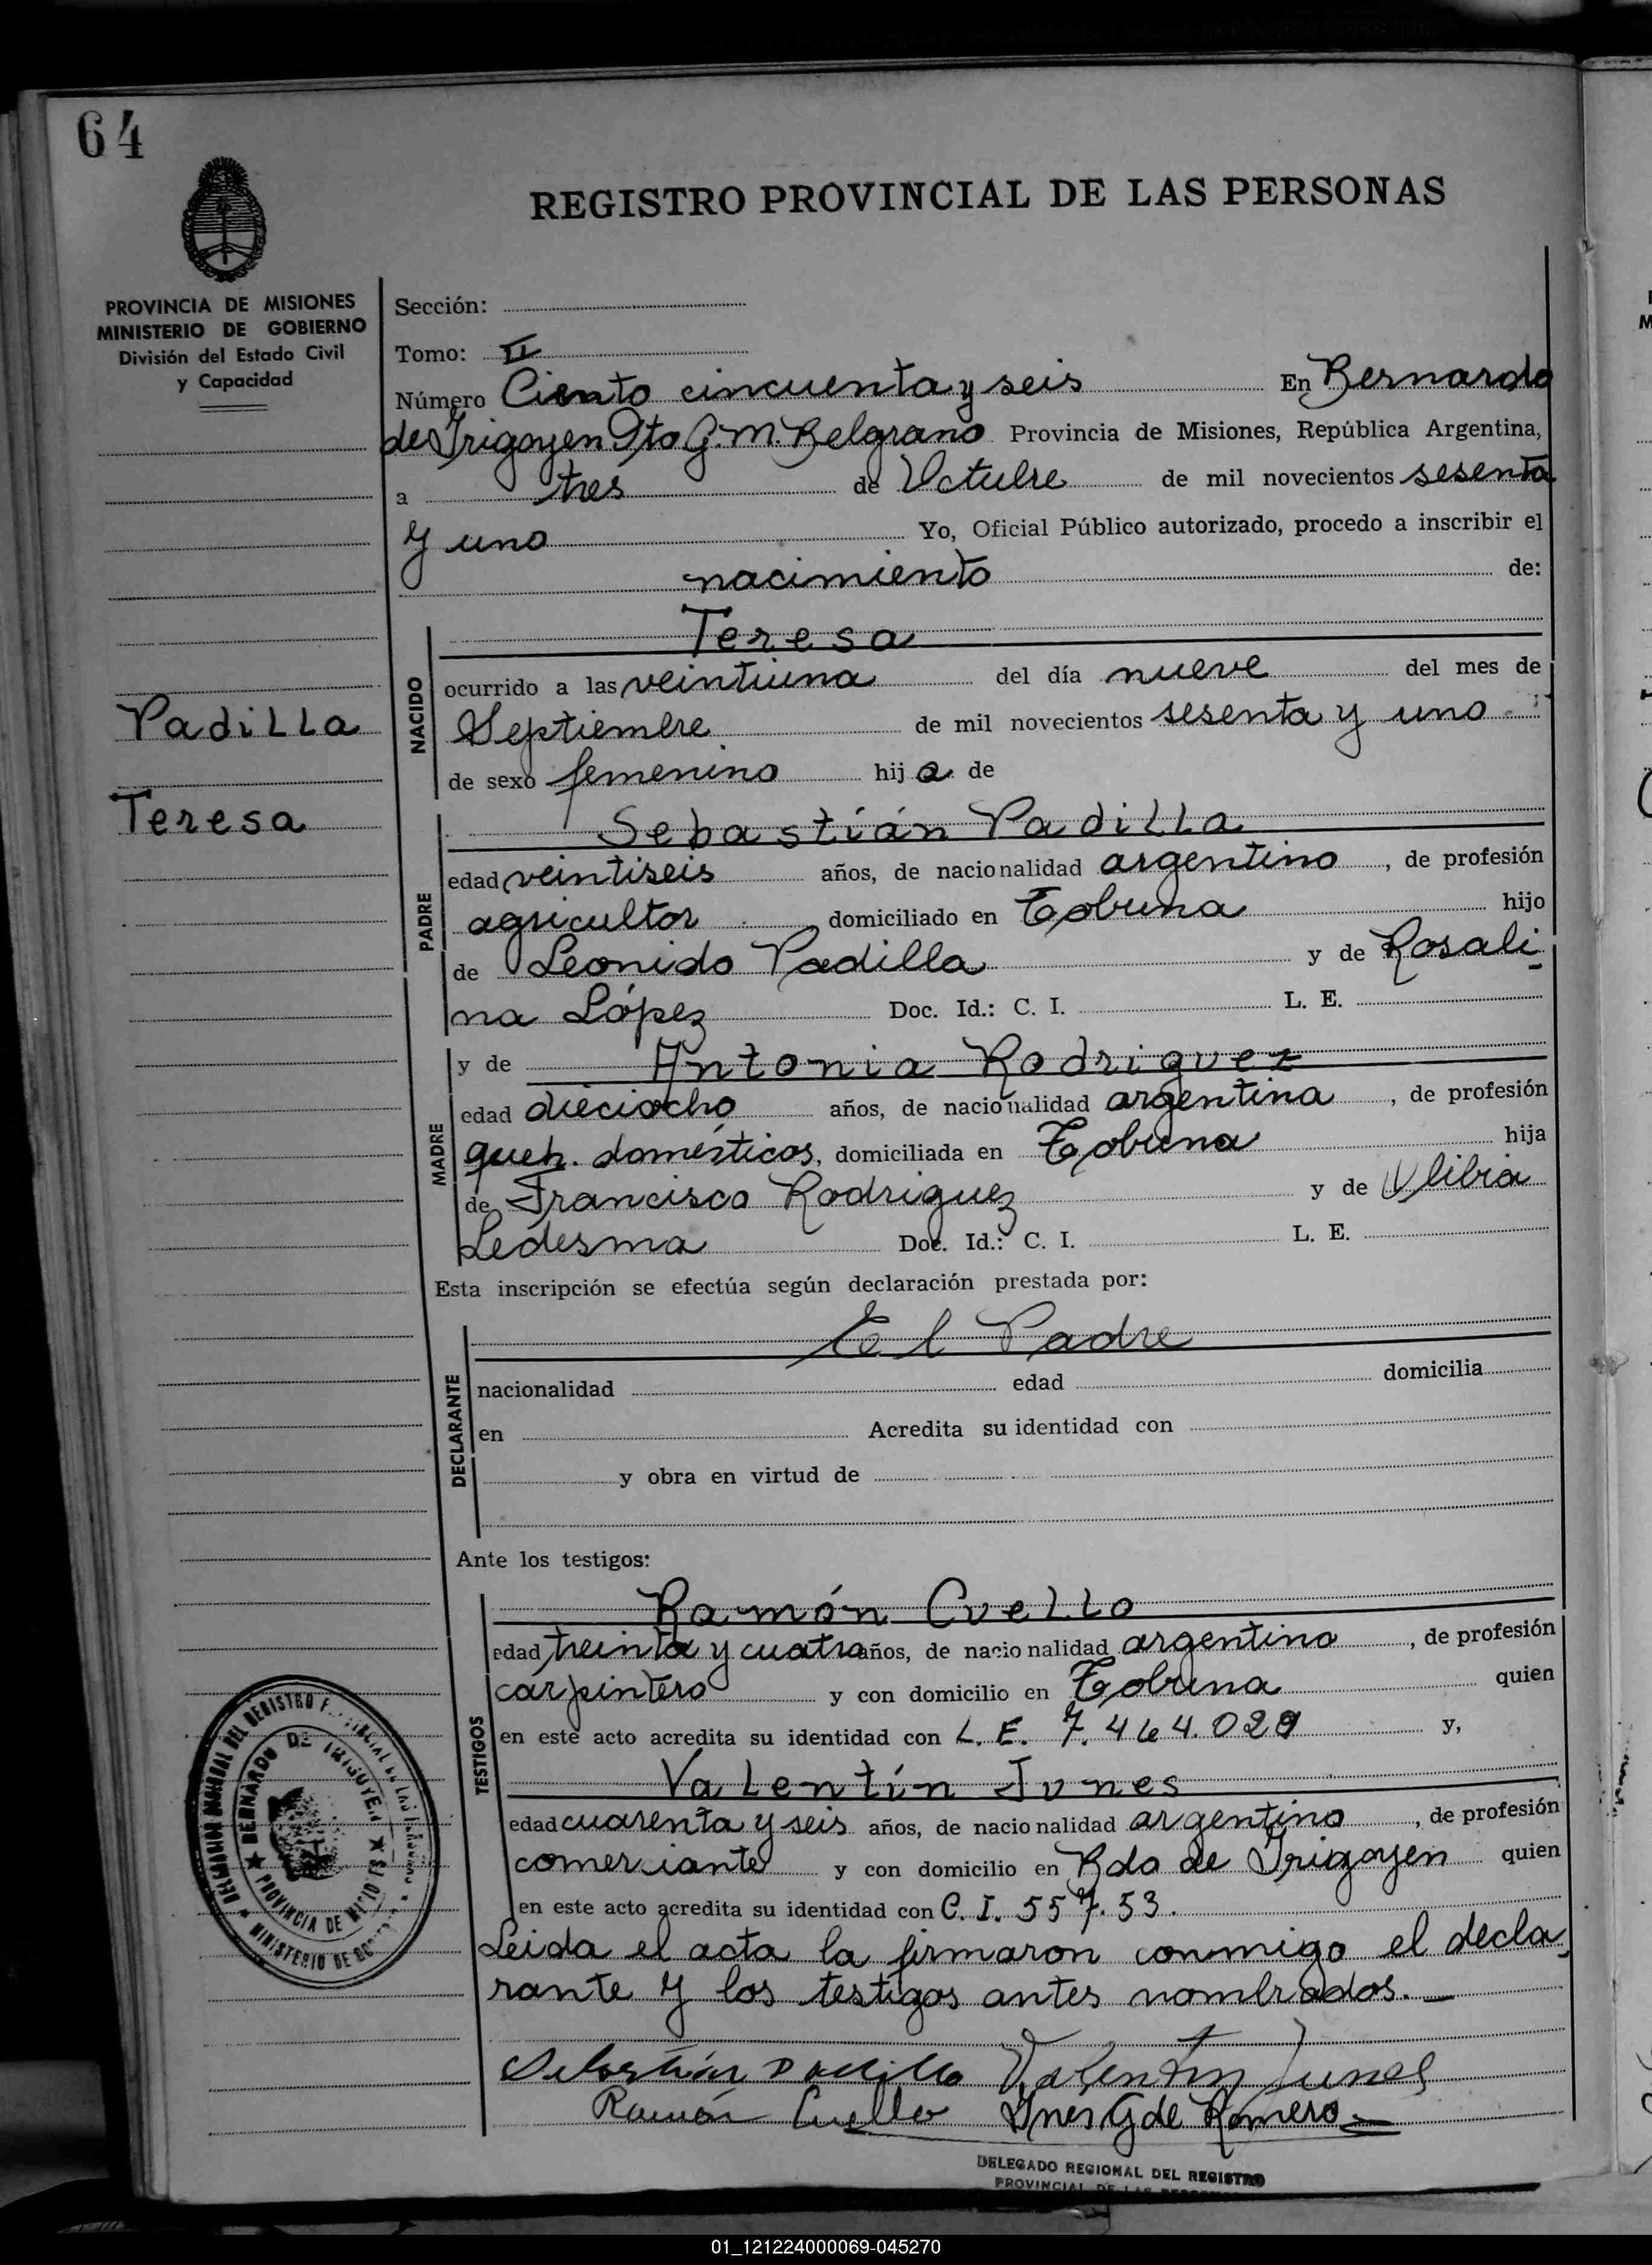 64
REGISTRO PROVINCIAL DE LAS PERSONAS
PROVINCIA DE MISIONES
MINISTERIO DE GOBIERNO
División del Estado Civil
y Capacidad
Sección:
Tomo: II
Número Ciento cincuenta y seis En Bernardo
de Irigoyen Dto G. M. Belgrano Provincia de Misiones, República Argentina,
a tres de Octubre de mil novecientos sesenta
y uno Yo, Oficial Público autorizado, procedo a inscribir el
nacimiento de:
Padilla
Teresa
NACIDO
Teresa
ocurrido a las veintiuna del día nueve del mes de
Septiembre de mil novecientos sesenta y uno
de sexo femenino hija de
PADRE
Sebastián Padilla
edad veintiseis años, de nacionalidad argentino, de profesión
agricultor domiciliado en Tobuna hijo
de Leonido Padilla y de Rosali
na López Doc. Id.: C. I. L. E.
MADRE
y de Antonia Rodriguez
edad dieciocho años, de nacionalidad argentina, de profesión
queh. domésticos, domiciliada en Tobuna hija
de Francisco Rodriguez y de Olibia
Ledesma Doc. Id.: C. I. L. E.
Esta inscripción se efectúa según declaración prestada por:
DECLARANTE
El Padre
nacionalidad edad domicilia
en Acredita su identidad con
y obra en virtud de
Ante los testigos:
TESTIGOS
Ramón Cuello
edad treinta y cuatro años, de nacionalidad argentino, de profesión
carpintero y con domicilio en Tobuna quien
en este acto acredita su identidad con L. E. 7. 464.029 y,
Valentín Junes
edad cuarenta y seis años, de nacionalidad argentino, de profesión
comerciante y con domicilio en Bdo de Irigoyen quien
en este acto acredita su identidad con C. I. 557.53.
Leida el acta la firmaron conmigo el decla
rante y los testigos antes nombrados.
Sebastián Padilla Valentin Junes
Ramón Cuello Ynes G de Romero
BERNARDO DE IRIGOYEN
PROVINCIA DE
MINISTERIO DE
DELEGADO REGIONAL DEL REGISTRO
PROVINCIAL DE LAS PERSONAS
01_121224000069-045270